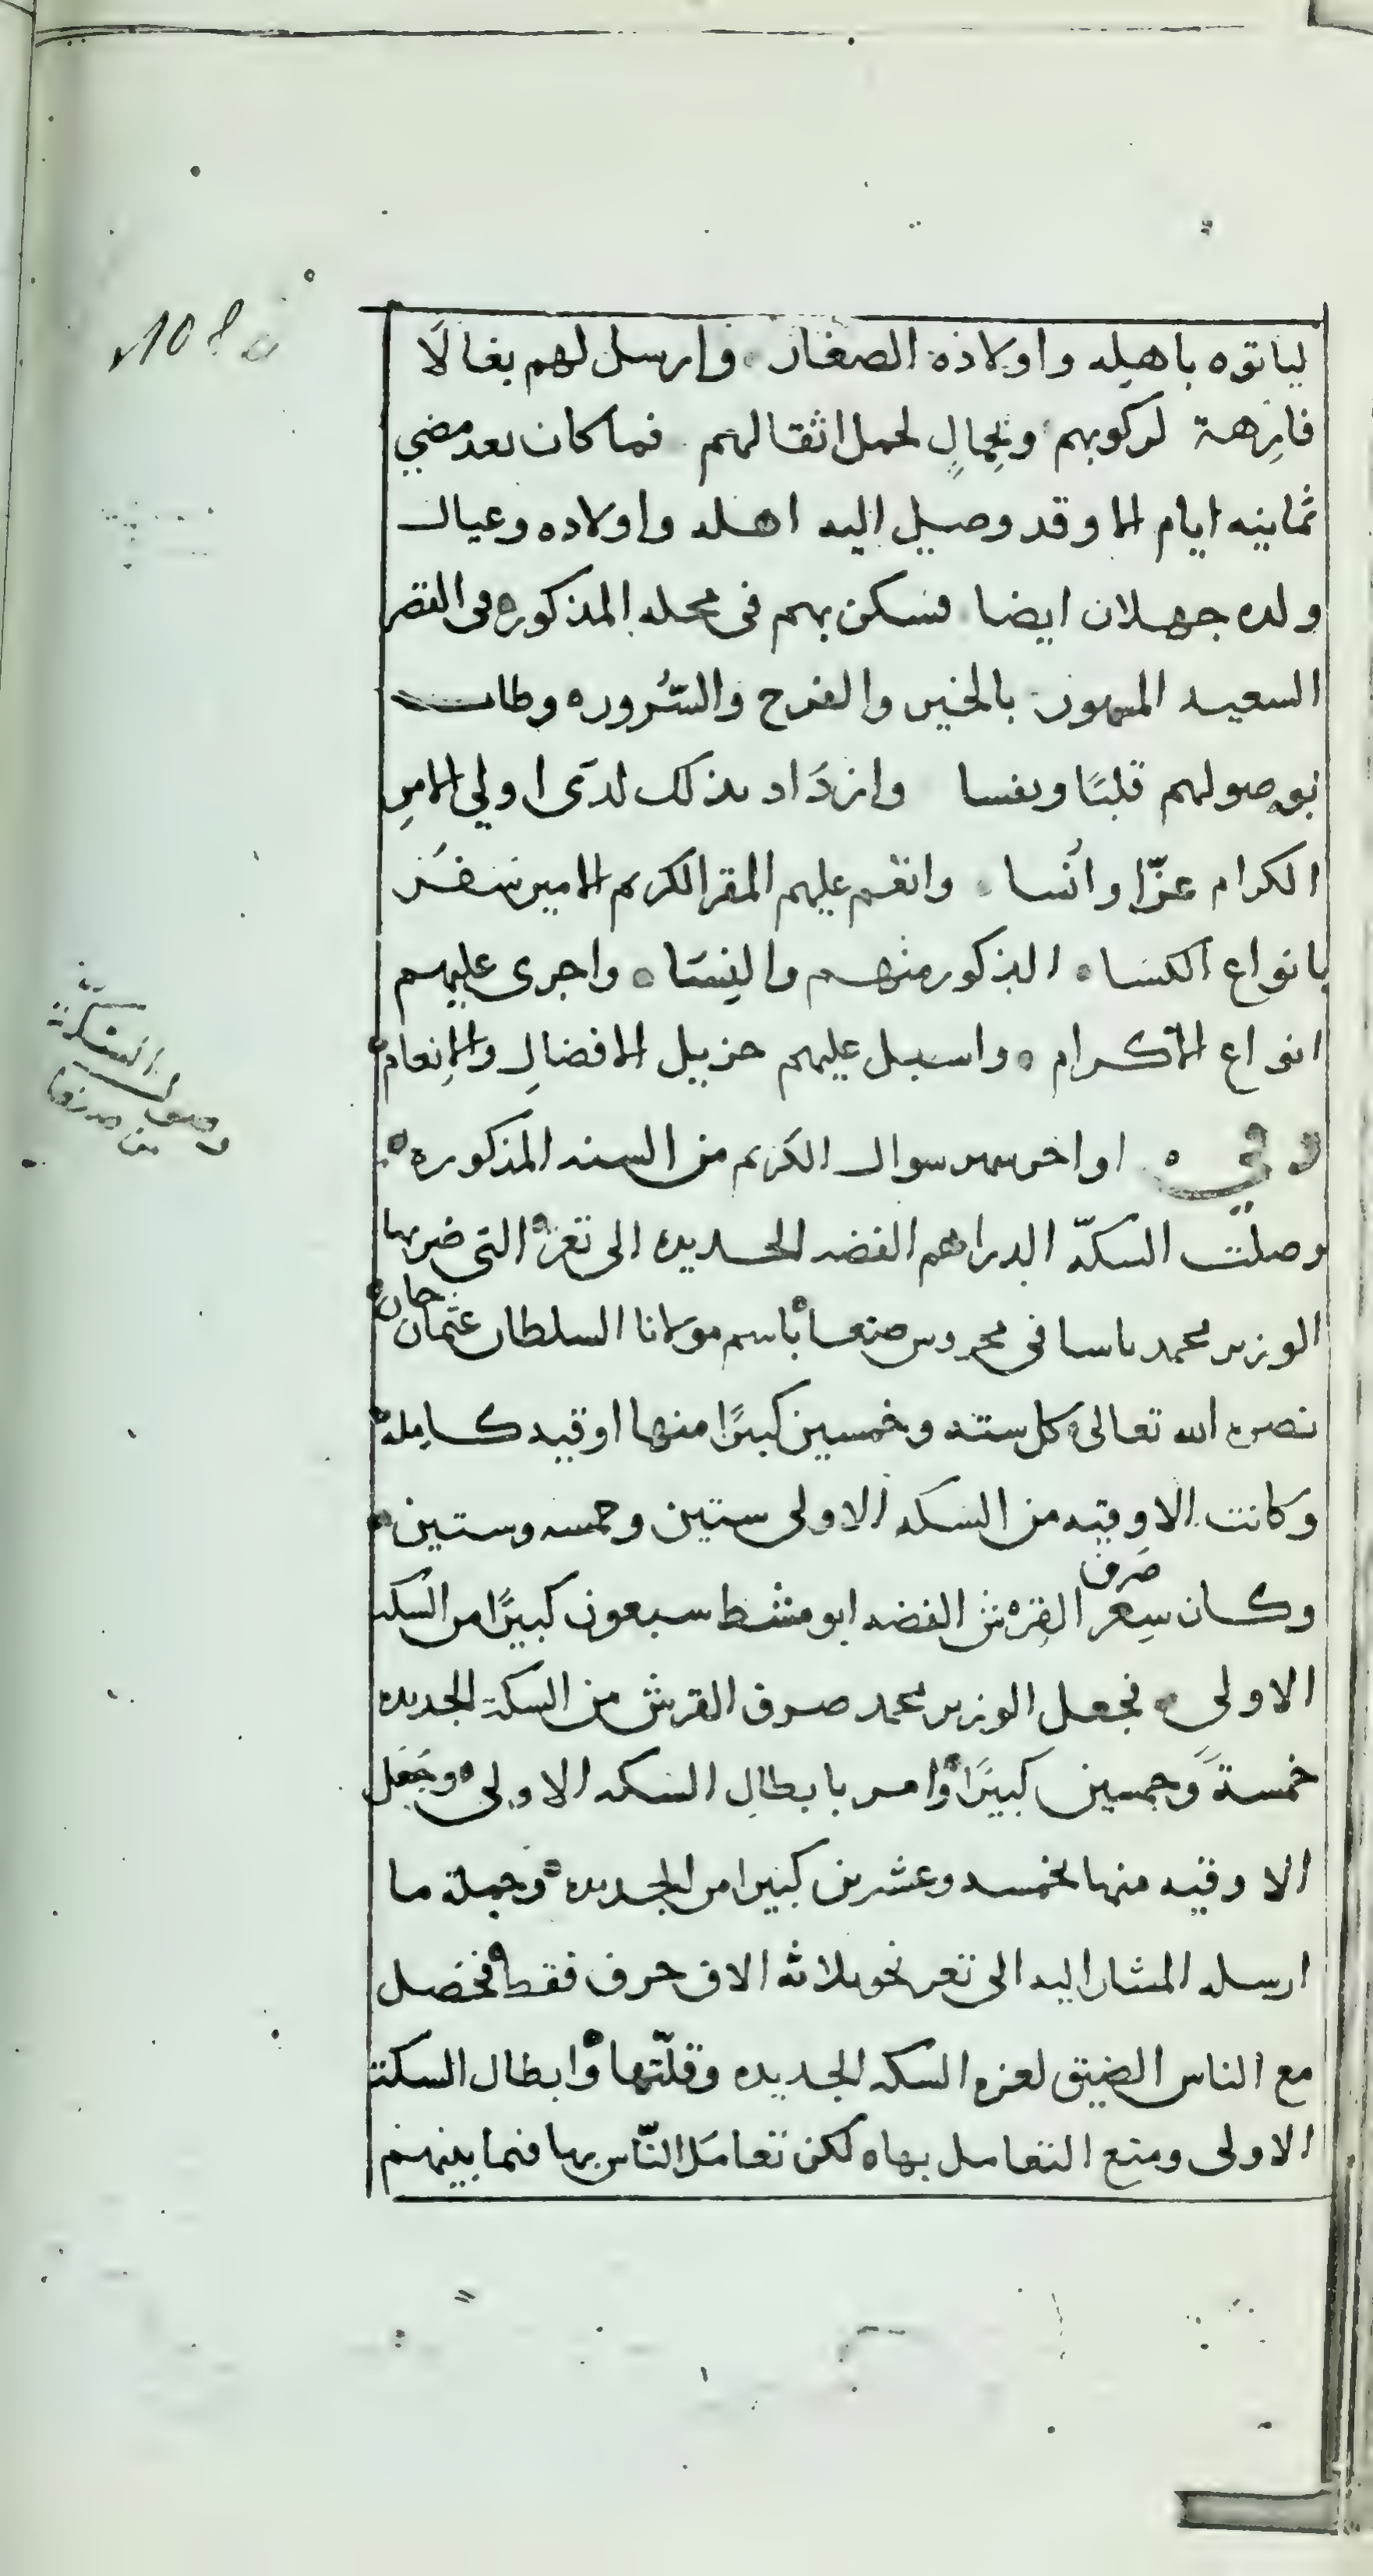 لياتوه باهله واولاده الصغار وارسل لهم بغالًا
فارِهة لركوبهم وجمالٍ لحمل اثقالهم فما كان بعد مضي
ثمانيه ايام الا وقد وصل اليه اهله واولاده وعيال
ولده جهلان ايضا فسكن بهم في محله المذكوره في القصر
السعيد المعمور بالخير والفرح والسُّروره وطاب
بوصولهم قلبًا ونفسا وازدَاد بذلك لدَى اولي الامرِ
الكرام عزّا واُنسا وانعم عليهم المقر الكريم الامير سفَر
بانواع الكسَاه الذكور منهم والنِسَاه واجرى عليهم
انواع الاكرام ه واسبل عليهم جزيل الافضالِ والاِنعام
وفي ه اواخر شهر شوال الكريم من السنه المذكوره
وصلت السكّه الدراهم الفضه الجديده الى تعز التي ضربها
الوزير محمد باشا في محروس صنعا باسم مولانا السلطان عثمان خان
نصره الله تعالى كل سته وخمسين كبيرًا منها اوقيه كاملِه
وكانت الاوقيه من السكه الاولى ستين وخمسه وستين
وكان سِعر صَرف القرش الفضه ابو مشط سبعون كبيرًا من السكه
الاولى فجعل الوزير محمد صرف القرش من السكة الجديده
خمسةَ وَخمسين كبيرًا وامر بابطالِ السكه الاولى وجَعَل
الاوقيه منها بخمسه وعشرين كبيرا من الجديده وجملة ما
ارسله المشار اليه الى تعز نحو ثلاثه الاف حرف فقط فحصل
مع الناس الضيق لعزه السكه الجديده وقلّتها وابطال السكة
الاولى ومنع التعامل بهاه لكن تعامَل النّاس بها فيما بينهم
وصول السكة
من صنعا